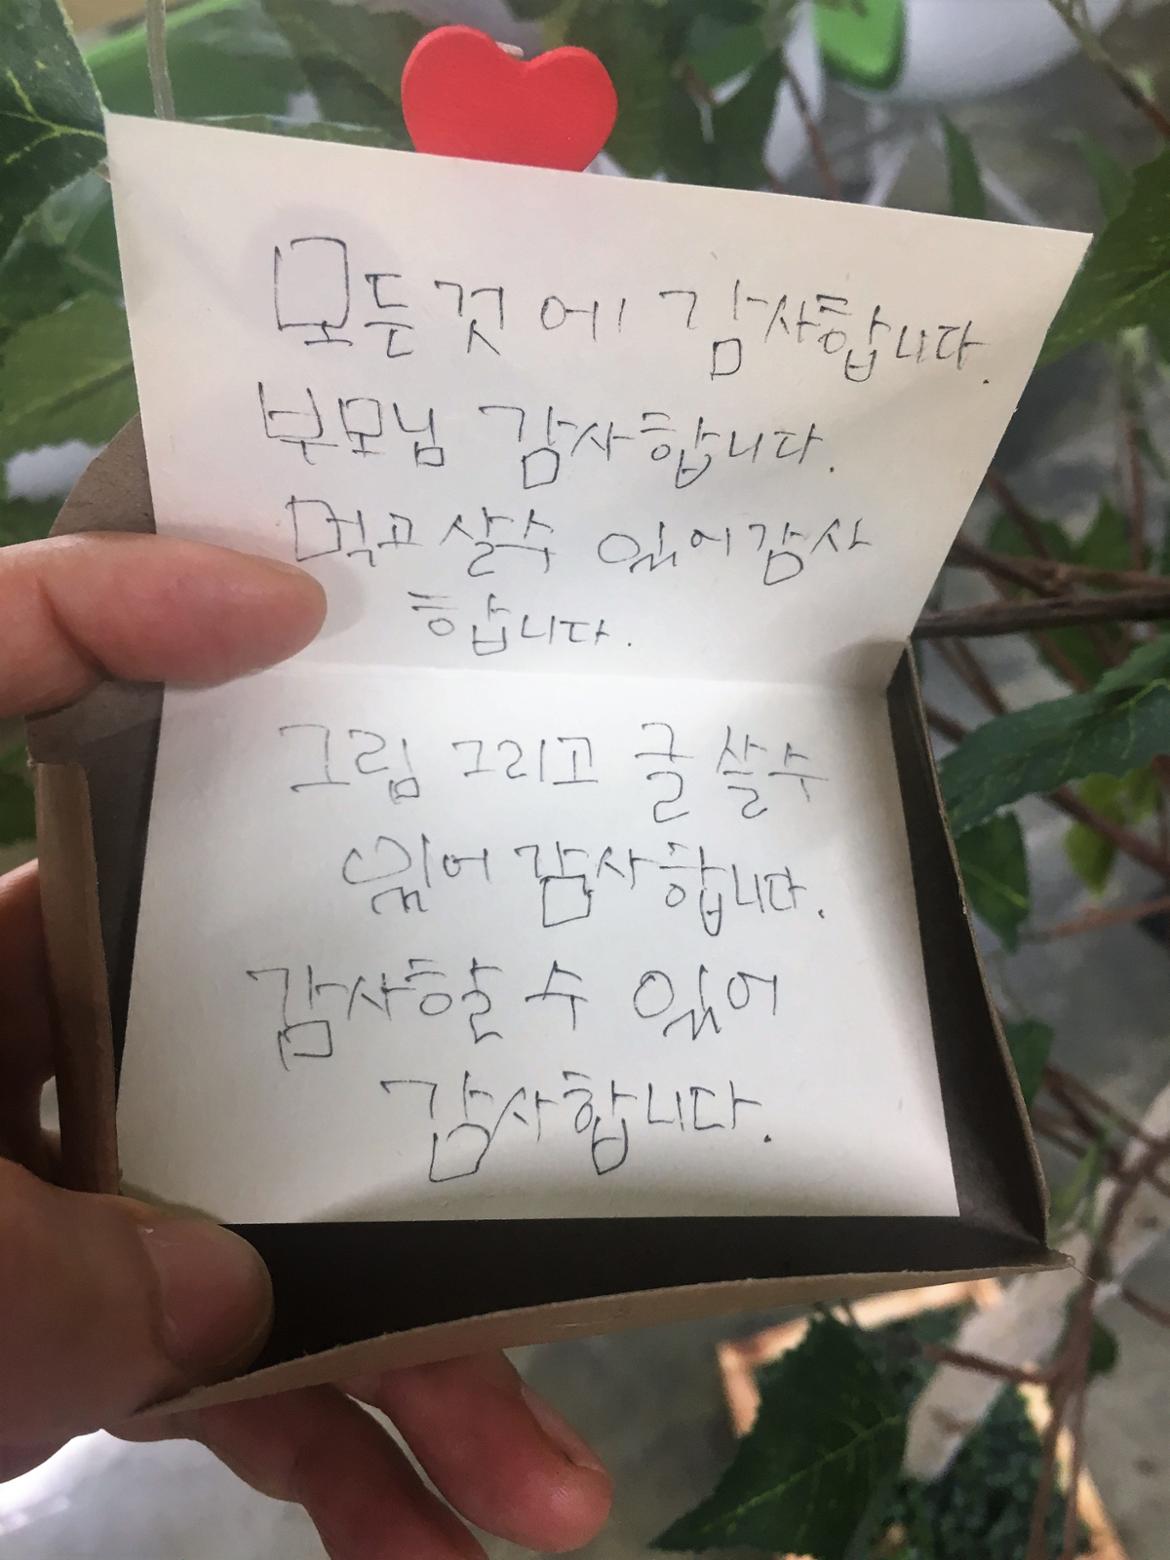 모든것에 감사합니다.
부모님 감사합니다.
먹고 살수 있어 감사
합니다.
그림 그리고 글 쓸수
있어 감사합니다.
감사할 수 있어
감사합니다.